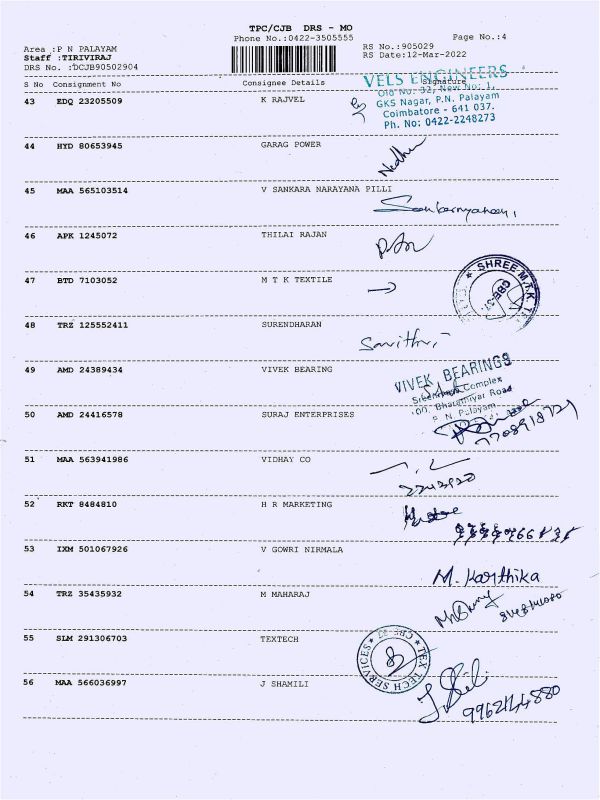 TPC/CJB DRS - MO
Phone No.:0422-3505555 Page No.:4
Area :P N PALAYAM RS No.:905029
Staff :TIRIVIRAJ RS Date:12-Mar-2022
DRS No. :DCJB90502904
S No Consignment No Consignee Details Signature
VELS ENGINEERS
Old No: 32, New No: 1,
43 EDQ 23205509 K RAJVEL
GKS Nagar, P.N. Palayam
Coimbatore - 641 037.
Ph. No: 0422-2248273
44 HYD 80653945 GARAG POWER
45 MAA 565103514 V SANKARA NARAYANA PILLI
46 APK 1245072 THILAI RAJAN
47 BTD 7103052 M T K TEXTILE
SHREE M.T.K. CBE-37.
48 TRZ 125552411 SURENDHARAN
Savithri
49 AMD 24389434 VIVEK BEARING
VIVEK BEARINGS
Complex
Bharathiyar Road
P. N. Palayam
50 AMD 24416578 SURAJ ENTERPRISES
7708918729
51 MAA 563941986 VIDHAY CO
2243920
52 RKT 8484810 H R MARKETING
53 IXM 501067926 V GOWRI NIRMALA
M. Karthika
54 TRZ 35435932 M MAHARAJ
55 SLM 291306703 TEXTECH
TEX TECH SERVICES CBE-37
56 MAA 566036997 J SHAMILI
9962144880